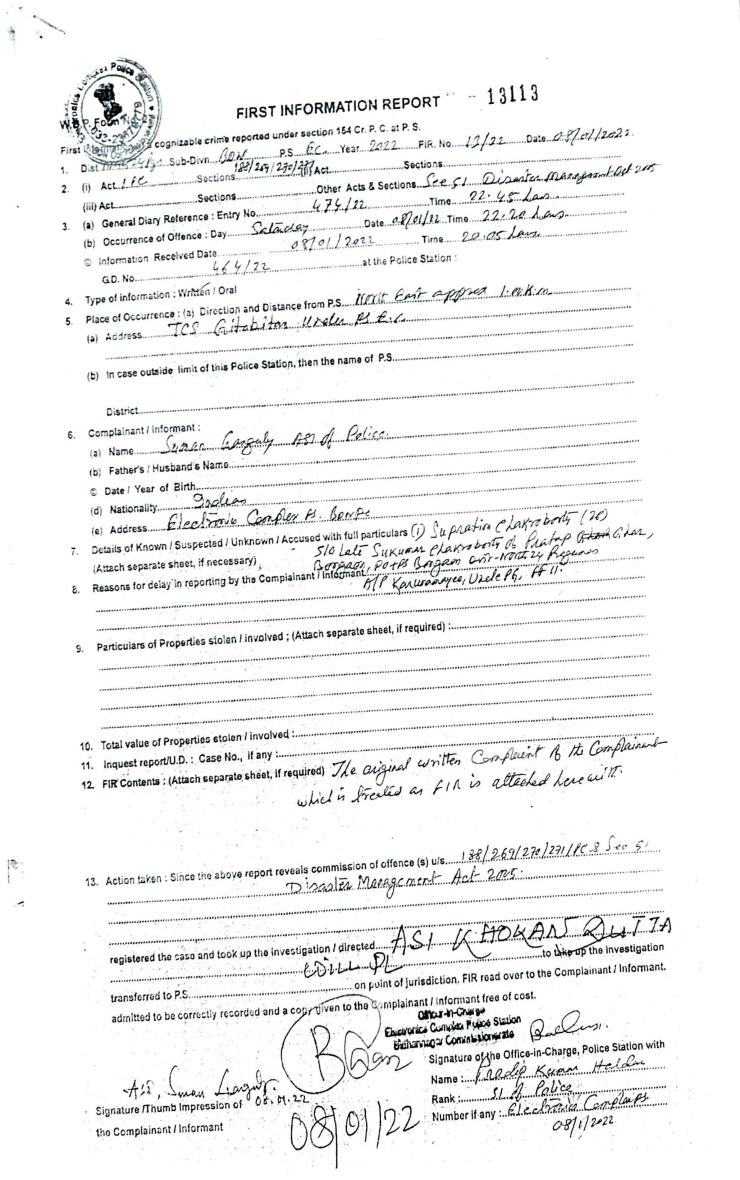 Electronics Complex Police Station
FIRST INFORMATION REPORT 13113
W.B.P. Form No
First Information of a cognizable crime reported under section 154 Cr. P. C. at P. S.
1. Dist. Sub-Divn. BDN P.S. EC Year 2022 FIR. No. 12/22 Date 08/01/2022
2. (i) Act IPC Sections 188/269/270/271 (ii) Act Sections
(iii) Act Sections Other Acts & Sections Sec 51 Disaster Management Act 2005
3. (a) General Diary Reference : Entry No. 474/22 Time 22.45 hrs
(b) Occurrence of Offence : Day Saturday Date 08/01/22 Time 22.20 hrs
© Information Received Date 08/01/2022 Time 20.05 hrs
G.D. No. 464/22 at the Police Station :
4. Type of information : Written / Oral
5. Place of Occurrence : (a) Direction and Distance from P.S. North East approx K.m
(a) Address TCS Gitabitan Under PS E.C
(b) In case outside limit of this Police Station, then the name of P.S.
District
6. Complainant / informant :
(a) Name Suman Ganguly ASI of Police.
(b) Father's / Husband's Name
© Date / Year of Birth
(d) Nationality Indian
(e) Address Electronic Complex PS.
7. Details of Known / Suspected / Unknown / Accused with full particulars (1) Supratim Chakroborty (20)
(Attach separate sheet, if necessary) S/O Late Sukumar Chakroborty of Pratap Ghar,
8. Reasons for delay in reporting by the Complainant / Informant Bongaon, PO+PS Bongaon Dist-North 24 Pgs
A/P Karunamoyee, Uzele PG, FF 11.
9. Particulars of Properties stolen / involved ; (Attach separate sheet, if required) :
10. Total value of Properties stolen / involved :
11. Inquest report/U.D. : Case No., if any :
12. FIR Contents : (Attach separate sheet, if required) The original written Complaint of the Complainant
which is treated as FIR is attached herewith.
13. Action taken : Since the above report reveals commission of offence (s) u/s. 188/269/270/271 IPC & Sec 51
Disaster Management Act 2005.
registered the case and took up the investigation / directed ASI KHOKAN DUTTA
WILL PL to take up the investigation
transferred to P.S. on point of jurisdiction. FIR read over to the Complainant / Informant.
admitted to be correctly recorded and a copy given to the Complainant / Informant free of cost.
Officer-in-Charge
Electronics Complex Police Station
Bidhannagar Commissionerate
Signature of the Office-in-Charge, Police Station with
Name : Pradip Kumar Halder
ASI, Suman Ganguly. 08.01.22
Signature /Thumb Impression of
Rank : SI of Police
the Complainant / Informant
08/01/22
Number if any : Electronic Complex PS
08/1/2022